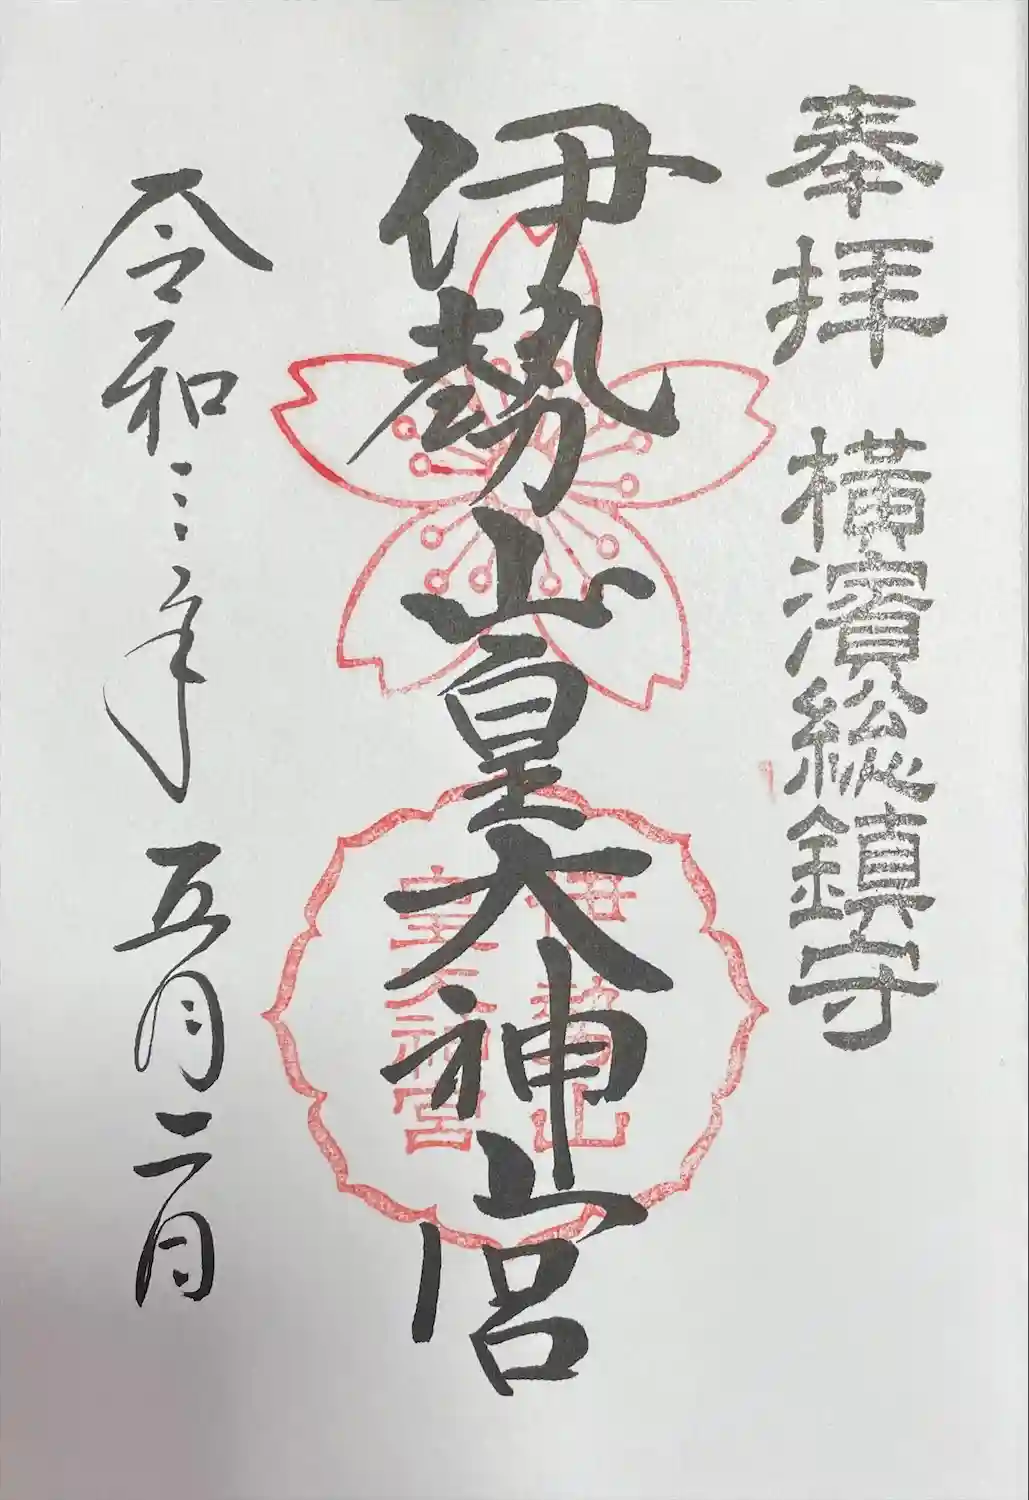 奉拝
横濱総鎮守
伊勢山皇大神宮
伊勢山
皇大神宮
令和三年
五月二日